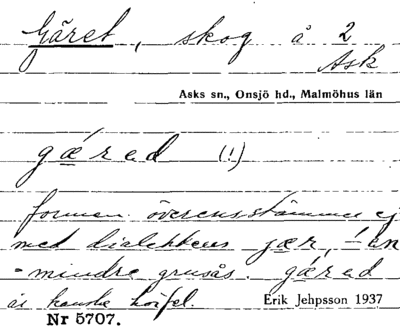 Gäret, skog å 2
Ask
Asks sn., Onsjö hd., Malmöhus län
gæ̀red (!)
formen överensstämmer ej
med dialektens jær, - en
- mindre grusås. gæ̀red
är kanske
Erik Jehpsson 1937
Nr 5707.